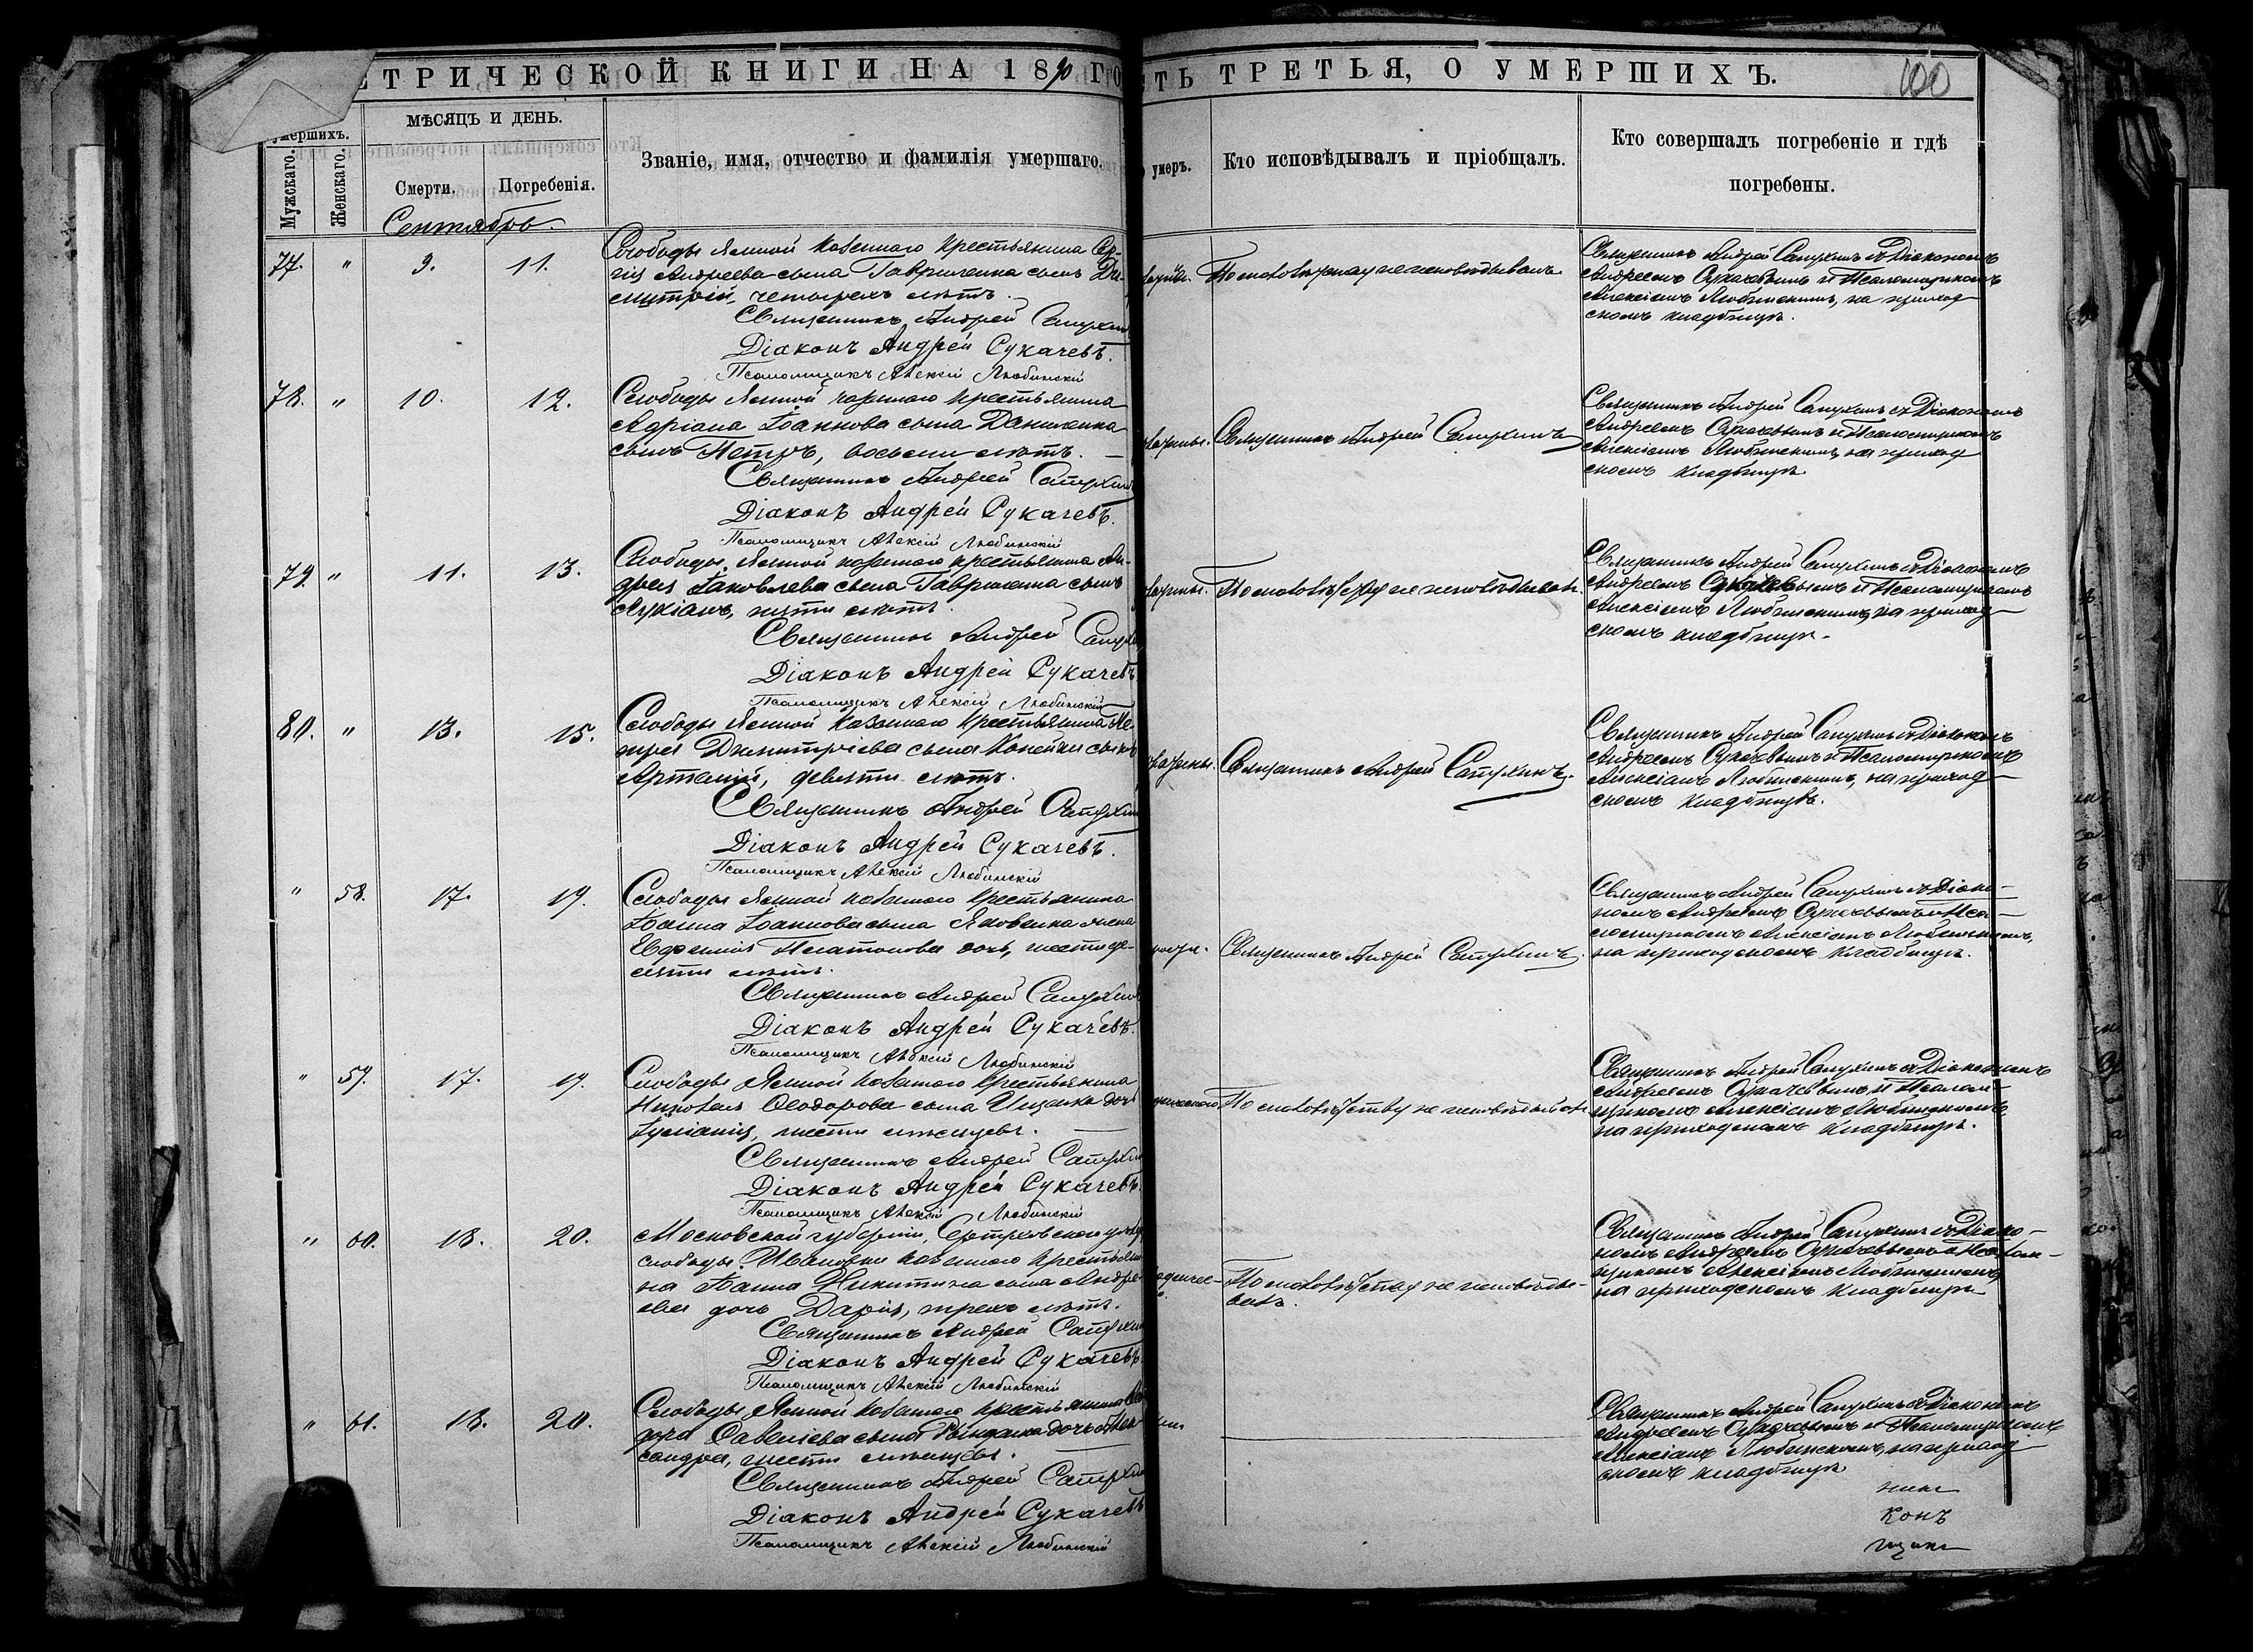 ЕТРИЧЕСКОЙ КНИГИ НА 1890 ГО
СТЬ ТРЕТЬЯ, О УМЕРШИХЪ.
100
умершихъ.
МѢСЯЦЪ И ДЕНЬ.
Мужскаго.
Женскаго.
Смерти.
Погребенія.
Званіе, имя, отчество и фамилія умершаго.
умеръ.
Кто исповѣдывалъ и пріобщалъ.
Кто совершалъ погребеніе и гдѣ
погребены.
Сентябрь.
77. " 9. 11.
Слободы Ясиной казеннаго крестьянина Сер-
гія Андреева сына Гавриленка сынъ Ди-
митрій, четырехъ лѣтъ.
Священникъ Андрей Сапухин
Діаконъ Андрей Сукачевъ.
Псаломщикъ Алексій Любинскій
По малолѣтству не исповѣдыванъ
Священникъ Андрей Сапухинъ съ Діакономъ
Андреемъ Сукачевымъ и Псаломщикомъ
Алексіемъ Любинскимъ, на приход
скомъ кладбищѣ.
78. " 10. 12.
Слободы Ясиной казеннаго крестьянина
Адріана Іоаннова сына Даниленка
сынъ Петръ, восьми лѣтъ.
Священникъ Андрей Сапухин
Діаконъ Андрей Сукачевъ.
Псаломщикъ Алексій Любинскій
Священникъ Андрей Сапухинъ
Священникъ Андрей Сапухинъ съ Діакономъ
Андреемъ Сукачевымъ и Псаломщикомъ
Алексіемъ Любинскимъ, на приход
скомъ кладбищѣ
79. " 11. 13.
Слободы Ясиной казеннаго крестьянина Ан-
дрея Іаковлева сына Гавриленка сынъ
Лукіанъ, пяти лѣтъ.
Священникъ Андрей Сапухи
Діаконъ Андрей Сукачевъ
Псаломщикъ Алексій Любинскій
По малолѣтству не исповѣдыванъ
Священникъ Андрей Сапухинъ съ Діакономъ
Андреемъ Сукачевымъ и Псаломщикомъ
Алексіемъ Любинскимъ, на приход
скомъ кладбищѣ.
80. " 13. 15.
Слободы Ясиной казеннаго крестьянина Пе-
тра Димитріева сына Копейки сынъ
Артемій, девяти лѣтъ.
Священникъ Андрей Сапухин
Діаконъ Андрей Сукачевъ.
Псаломщикъ Алексій Любинскій
Священникъ Андрей Сапухинъ.
Священникъ Андрей Сапухинъ съ Діакономъ
Андреемъ Сукачевымъ и Псаломщикомъ
Алексіемъ Любинскимъ, на приход
скомъ кладбищѣ.
" 58. 17. 19.
Слободы Ясиной казеннаго крестьянина
Іоанна Іоаннова сына Яковенка жена
Евфимія Платонова дочь, шестиде-
сяти лѣтъ.
Священникъ Андрей Сапухин
Діаконъ Андрей Сукачевъ.
Псаломщикъ Алексій Любинскій
Священникъ Андрей Сапухинъ.
Священникъ Андрей Сапухинъ съ Діако-
номъ Андреемъ Сукачевымъ и Пса-
ломщикомъ Алексіемъ Любинскимъ,
на приходскомъ кладбищѣ.
" 59. 17. 19.
Слободы Ясиной казеннаго крестьянина
Ѳеодорова сына дочь
Іуліанія, шести мѣсяцевъ.
Священникъ Андрей Сапухин
Діаконъ Андрей Сукачевъ.
Псаломщикъ Алексій Любинскій
По малолѣтству не исповѣдывана
Священникъ Андрей Сапухинъ съ Діакономъ
Андреемъ Сукачевымъ и Псалом-
щикомъ Алексіемъ Любинскимъ,
на приходскомъ кладбищѣ.
" 60. 18. 20.
Московской губерніи,
слободы Ивановки казеннаго крестьяни
на Іоанна Никитина сына Андре
ева дочь Дарія, трехъ лѣтъ.
Священникъ Андрей Сапухин
Діаконъ Андрей Сукачевъ
Псаломщикъ Алексій Любинскій
По малолѣтству не исповѣды-
вана.
Священникъ Андрей Сапухинъ съ Діако-
номъ Андреемъ Сукачевымъ и Псалом-
щикомъ Алексіемъ Любинскимъ
на приходскомъ кладбищѣ
" 61. 18. 20.
Слободы Ясиной казеннаго крестьянина
дора Савеліева сына дочь Алек
сандра, шести мѣсяцевъ.
Священникъ Андрей Сапухин
Діаконъ Андрей Сукачевъ
Псаломщикъ Алексій Любинскій
Священникъ Андрей Сапухинъ съ Діакономъ
Андреемъ Сукачевымъ и Псаломщикомъ
Алексіемъ Любинскимъ, на приход
скомъ кладбищѣ
никъ
конъ
щикъ